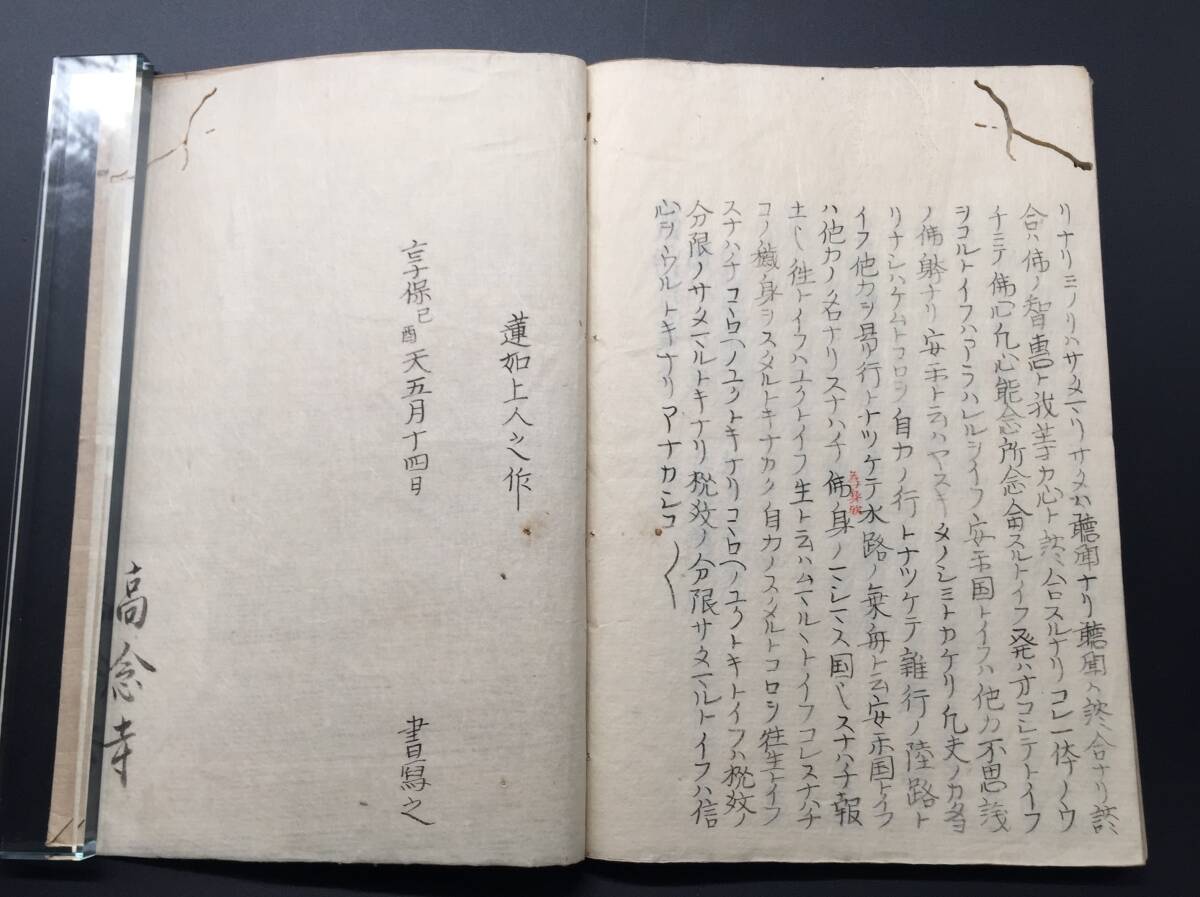 リナリミノリハサタマリサタハ聽聞ナリ聽聞ト談合ナリ談
合ハ佛ノ智惠ト我等カ心ト談合スルナリコレ一体ノウ
チニテ佛心凡心能念所念命スルトイフ発ハオコシテトイフ
ヲコルトイフハアラハレルヲイフ安樂国トイフハ他力不思議
ノ佛躰ナリ安樂ト云ハヤスキタノシミトカケリ凡夫ノカタヨ
リナシハケムトコロヲ自力ノ行トナツケテ難行ノ陸路ト
イフ他力ヲ易行トナツケテ水路ノ乗舟ト云安樂国トイフ
ハ他力ノ名ナリスナハチ佛身ノマシマス国也スナハチ報
土也往トイフハユクトイフ生ト云ハムマルヽトイフコレスナハチ
コノ穢身ヲスタルトキナカク自力ノスヽメルトコロヲ往生トイフ
スナハチコヽロヘノユクトキナリコヽロヘノユクトキトイフハ機教ノ
分限ノサタマルトキナリ機教ノ分限サタマルトイフハ信
心ヲウルトキナリアナカシコ〱
蓮如上人之作
享保己酉天五月十四日
書寫之
高念寺